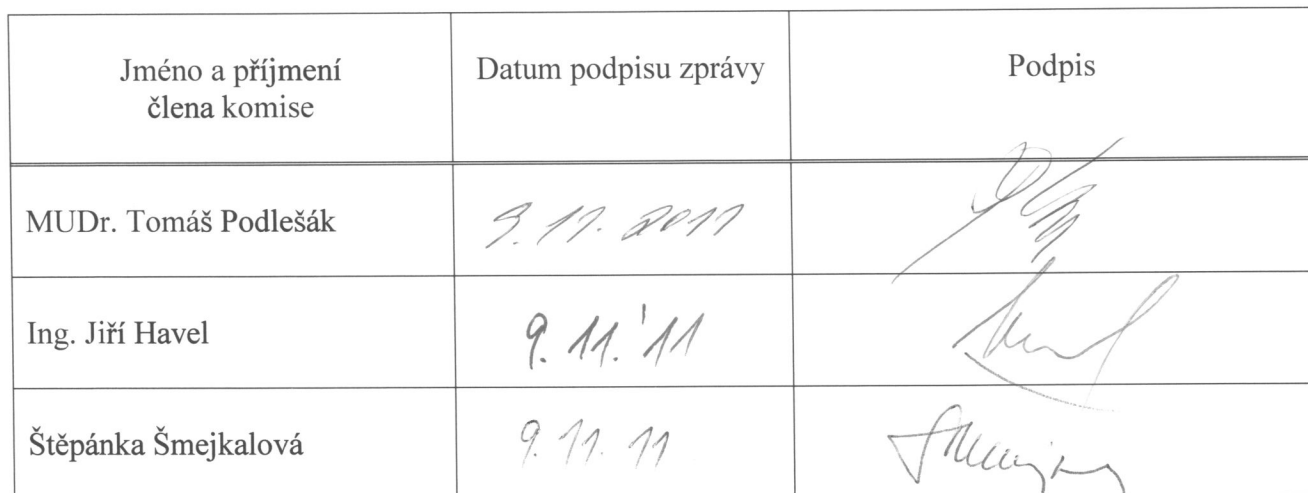 Jméno a příjmení
člena komise
Datum podpisu zprávy
Podpis
MUDr. Tomáš Podlešák
9.11.2011
Ing. Jiří Havel
9.11.'11
Štěpánka Šmejkalová
9.11.11